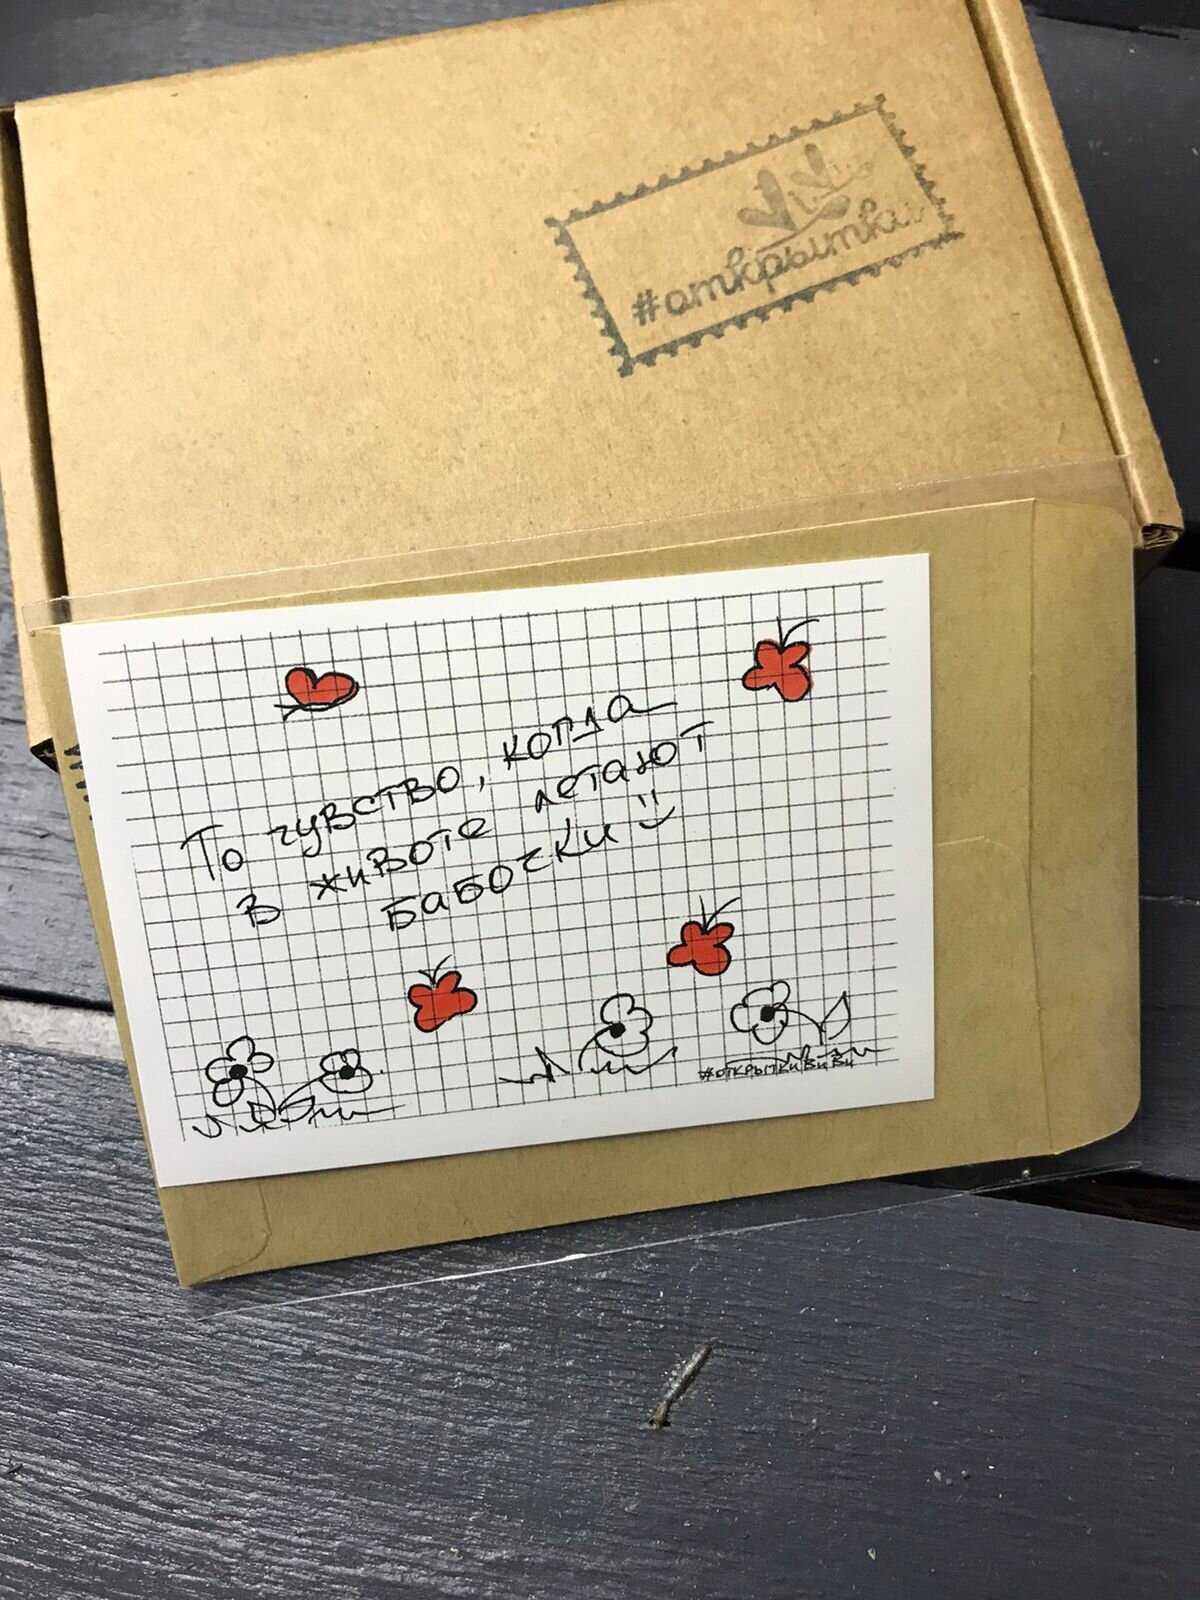 ViVi
#открытки
То чувство, когда
в животе летают
бабочки
#открыткиВиВи